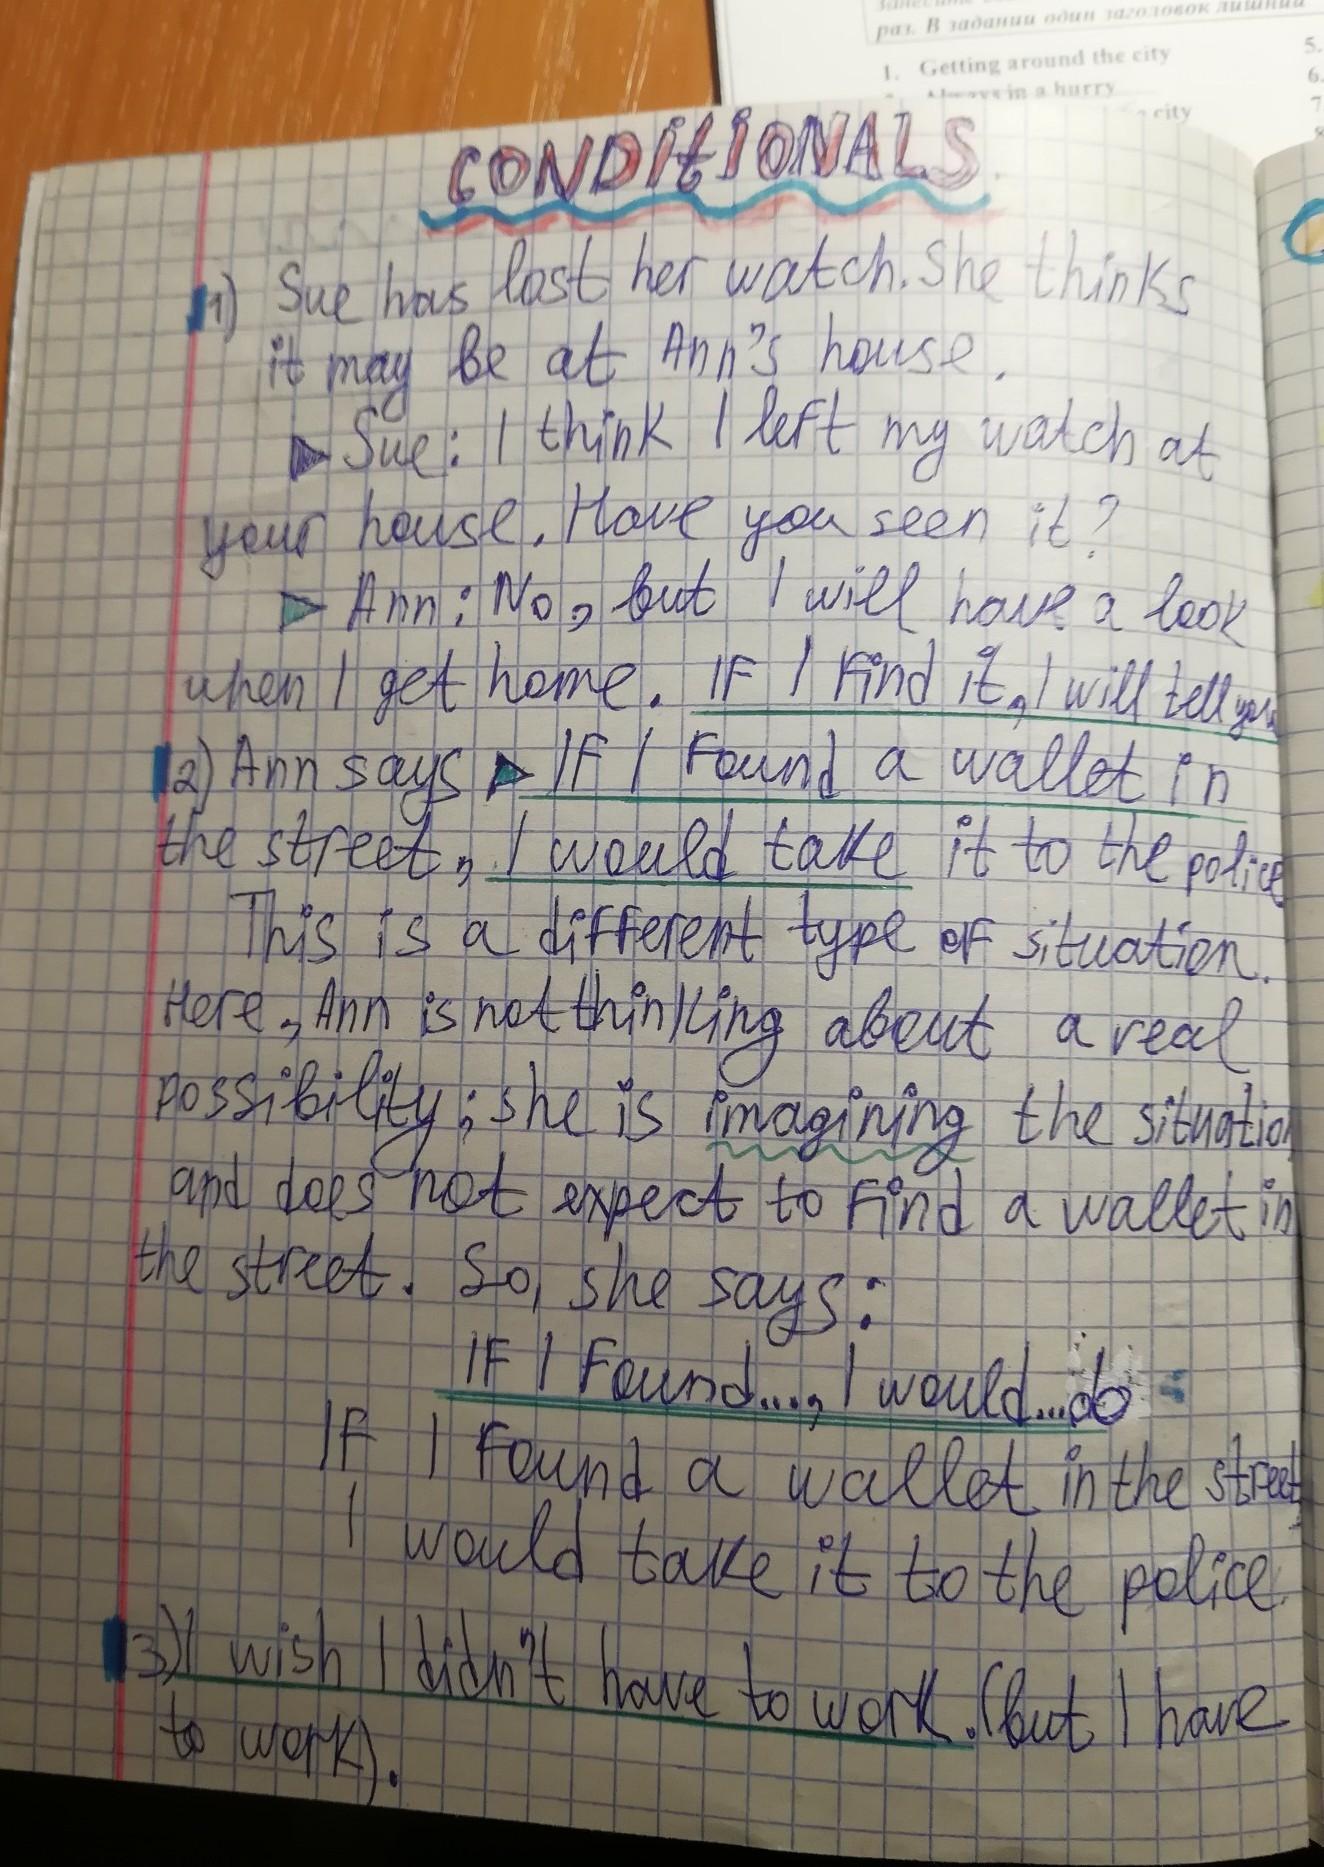 раз. В задании один заголовок лишний
1. Getting around the city
5.
Always in a hurry
6.
city
7
CONDITIONALS
1) Sue has lost her watch. She thinks
it may be at Ann's house.
Sue: I think I left my watch at
your house. Have you seen it?
Ann: No, but I will have a look
when I get home. IF I find it, I will tell you
2) Ann says IF I Found a wallet in
the street, I would take it to the police
This is a different type of situation.
Here, Ann is not thinking about a real
possibility; she is imagining the situation
and does not expect to find a wallet in
the street. So, she says:
IF I Found..., I would...do
IF I Found a wallet in the street
I would take it to the police.
3) I wish I didn't have to work. (but I have
to work).